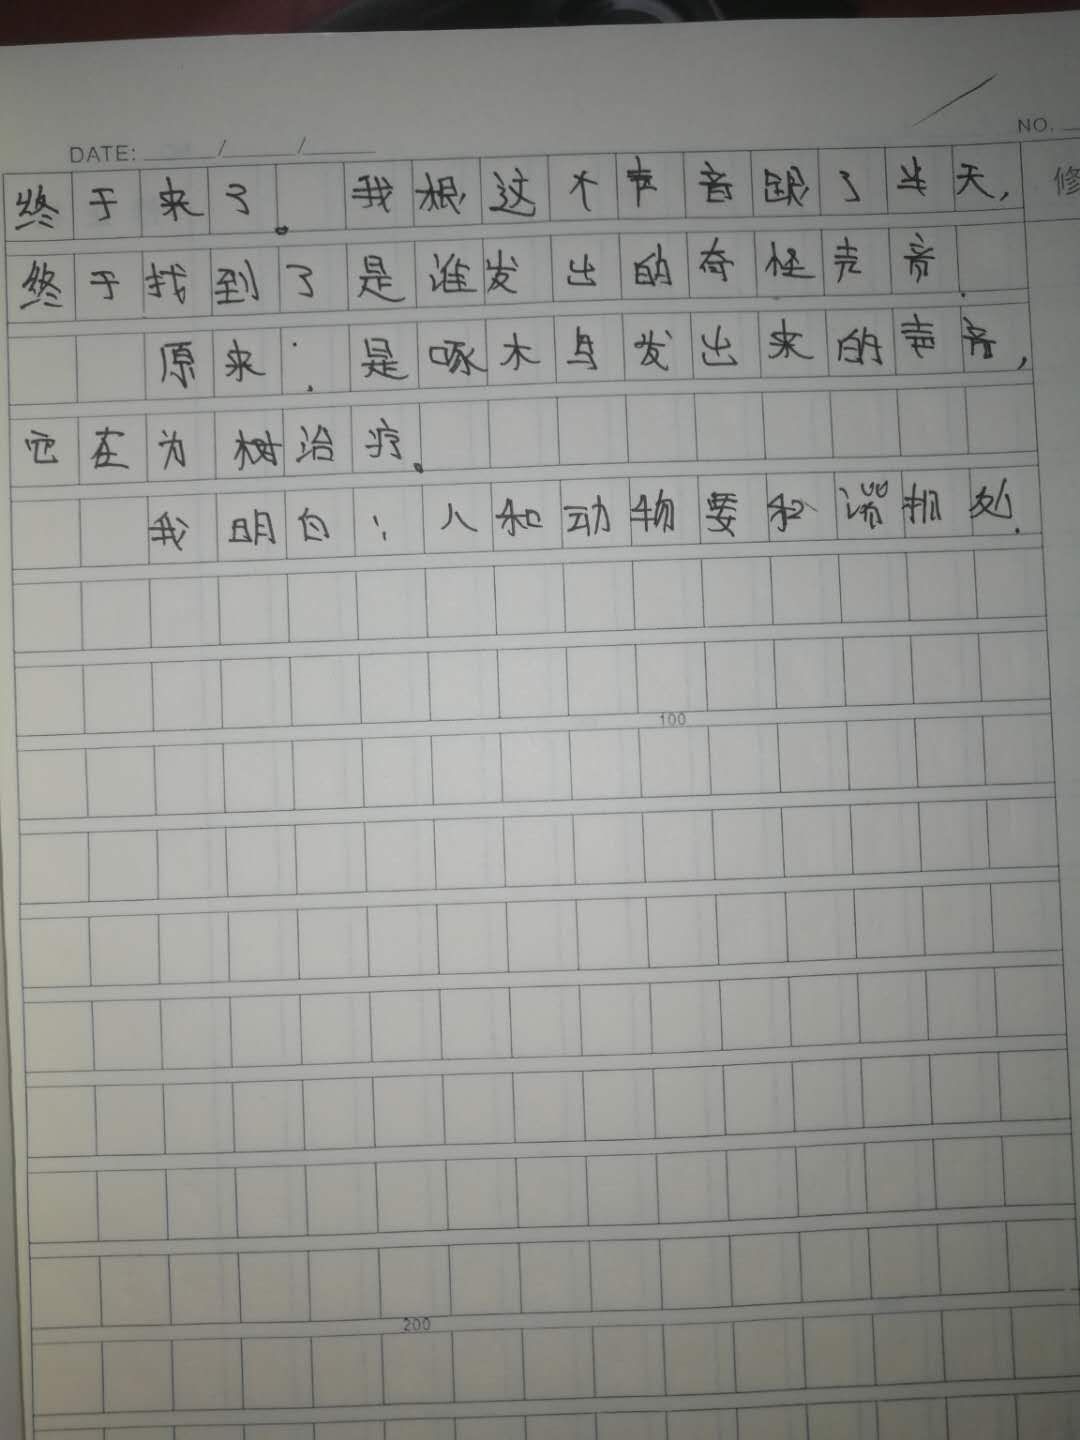 DATE: / /
NO.
修
终于来了。我根这个声音跟了半天，
终于找到了是谁发出的奇怪声音.
原来：是啄木鸟发出来的声音，
它在为树治疗。
我明白：人和动物要和谐相处.
100
200